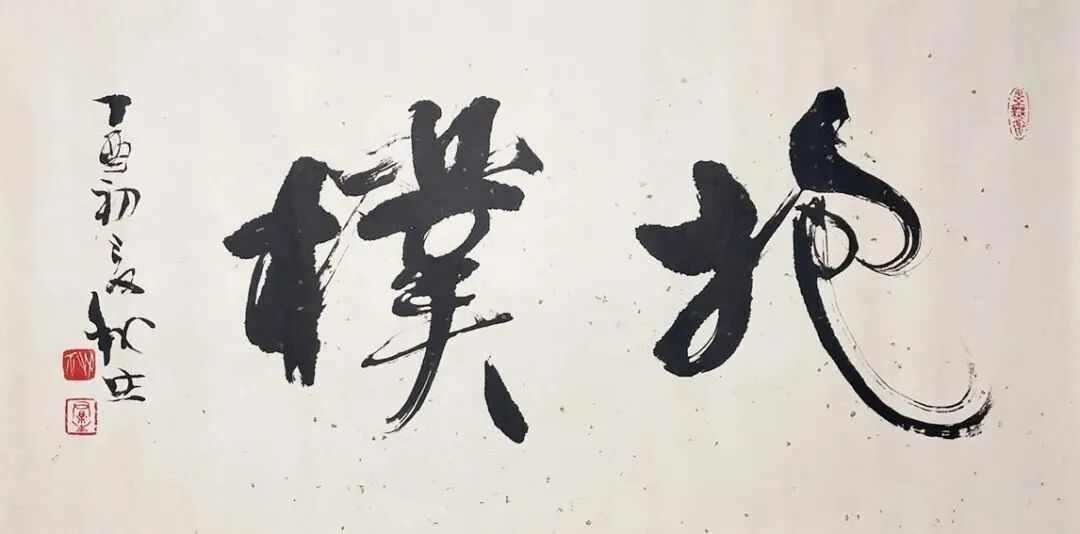 抱樸
丁酉初夏